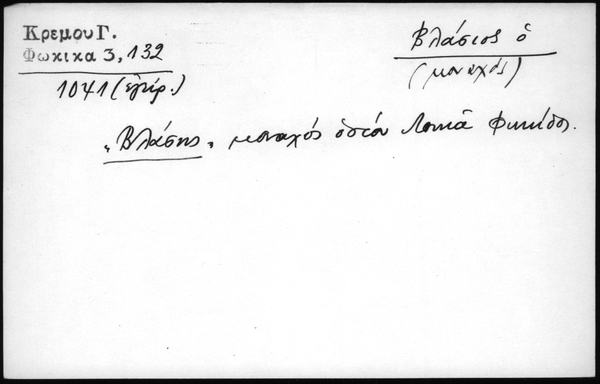 Κρεμου Γ.
Φωκικα 3, 132
1041 (έγγρ.)
Βλάσιος ὁ
(μοναχός)
"Βλάσης" μοναχός ὁσίου Λουκᾶ Φωκίδος.